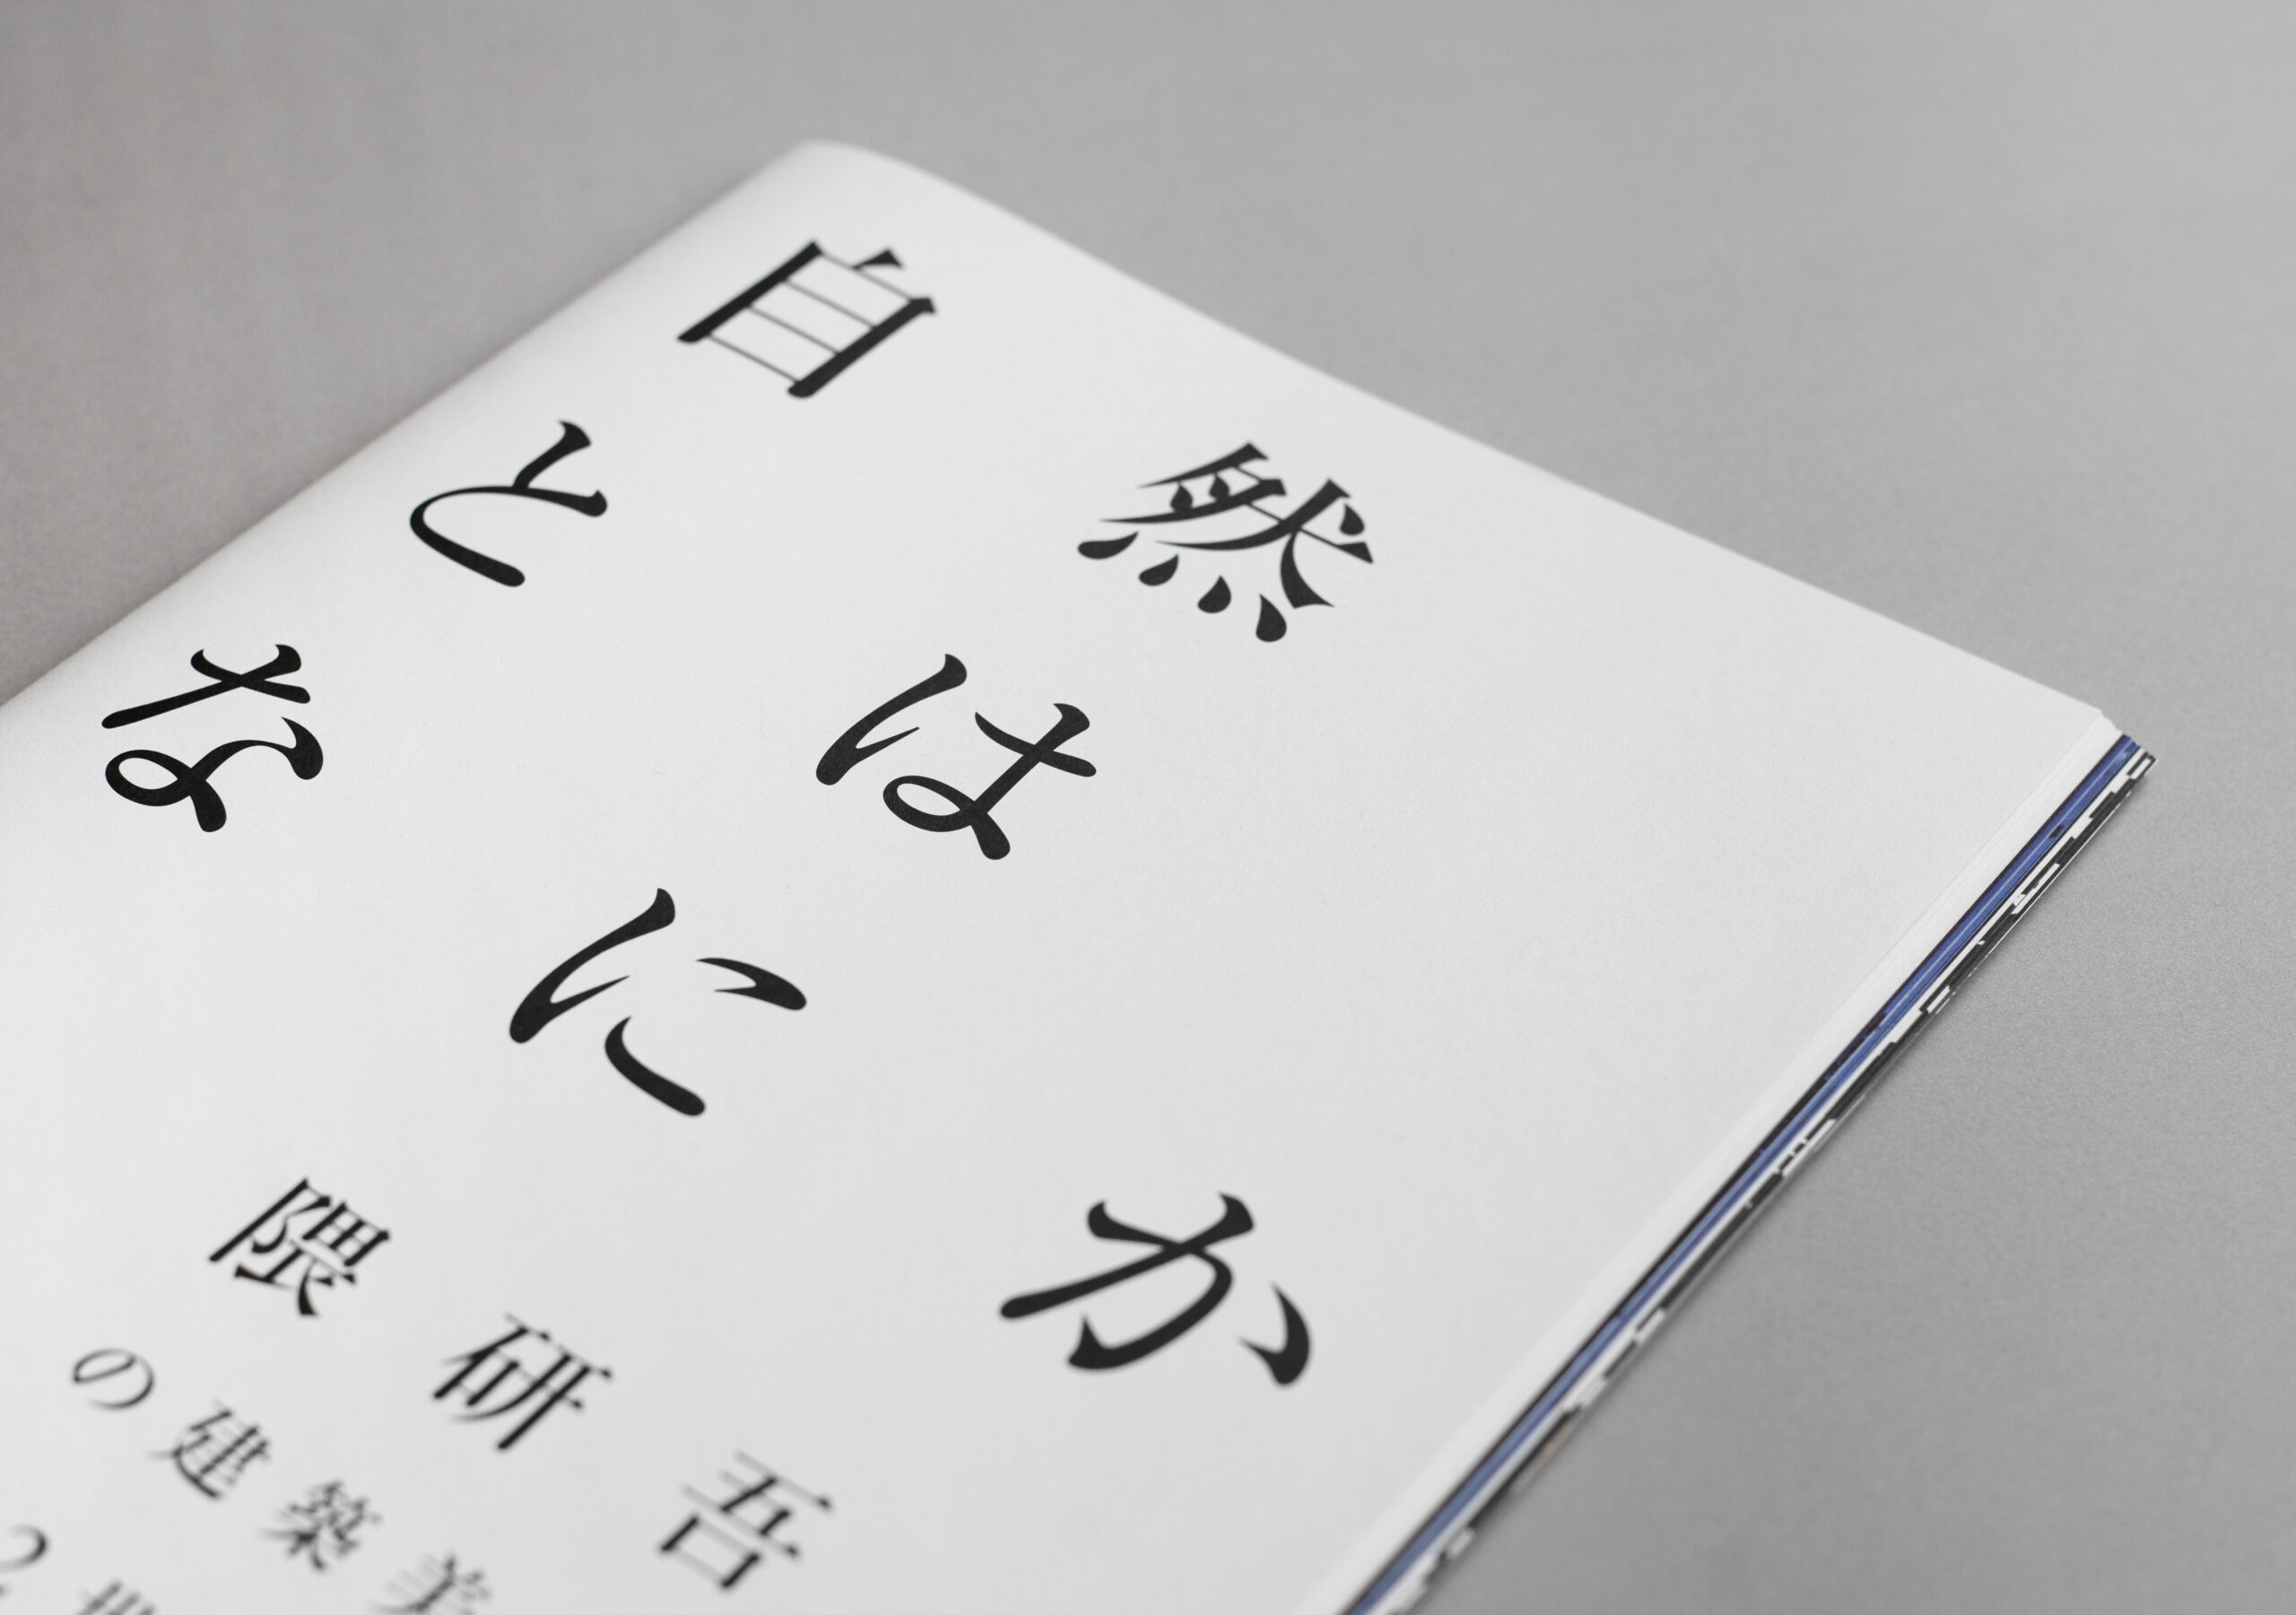 自然
とは
なにか
隈研吾
の建築美